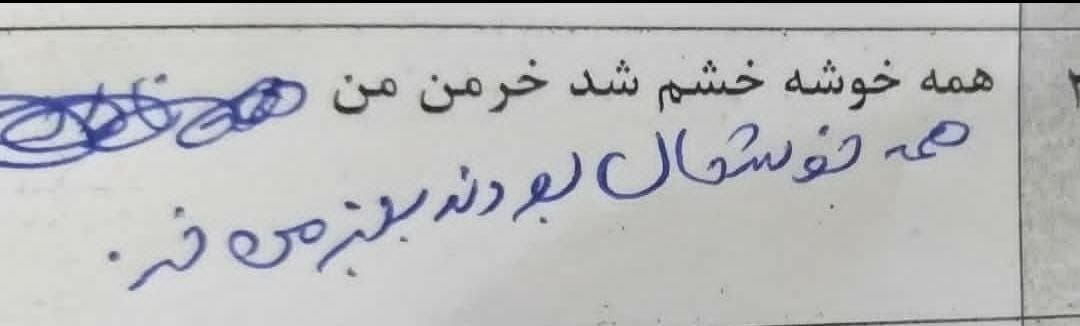 همه خوشه خشم شد خرمن من
همه خوشحال بودند بجز من خر.